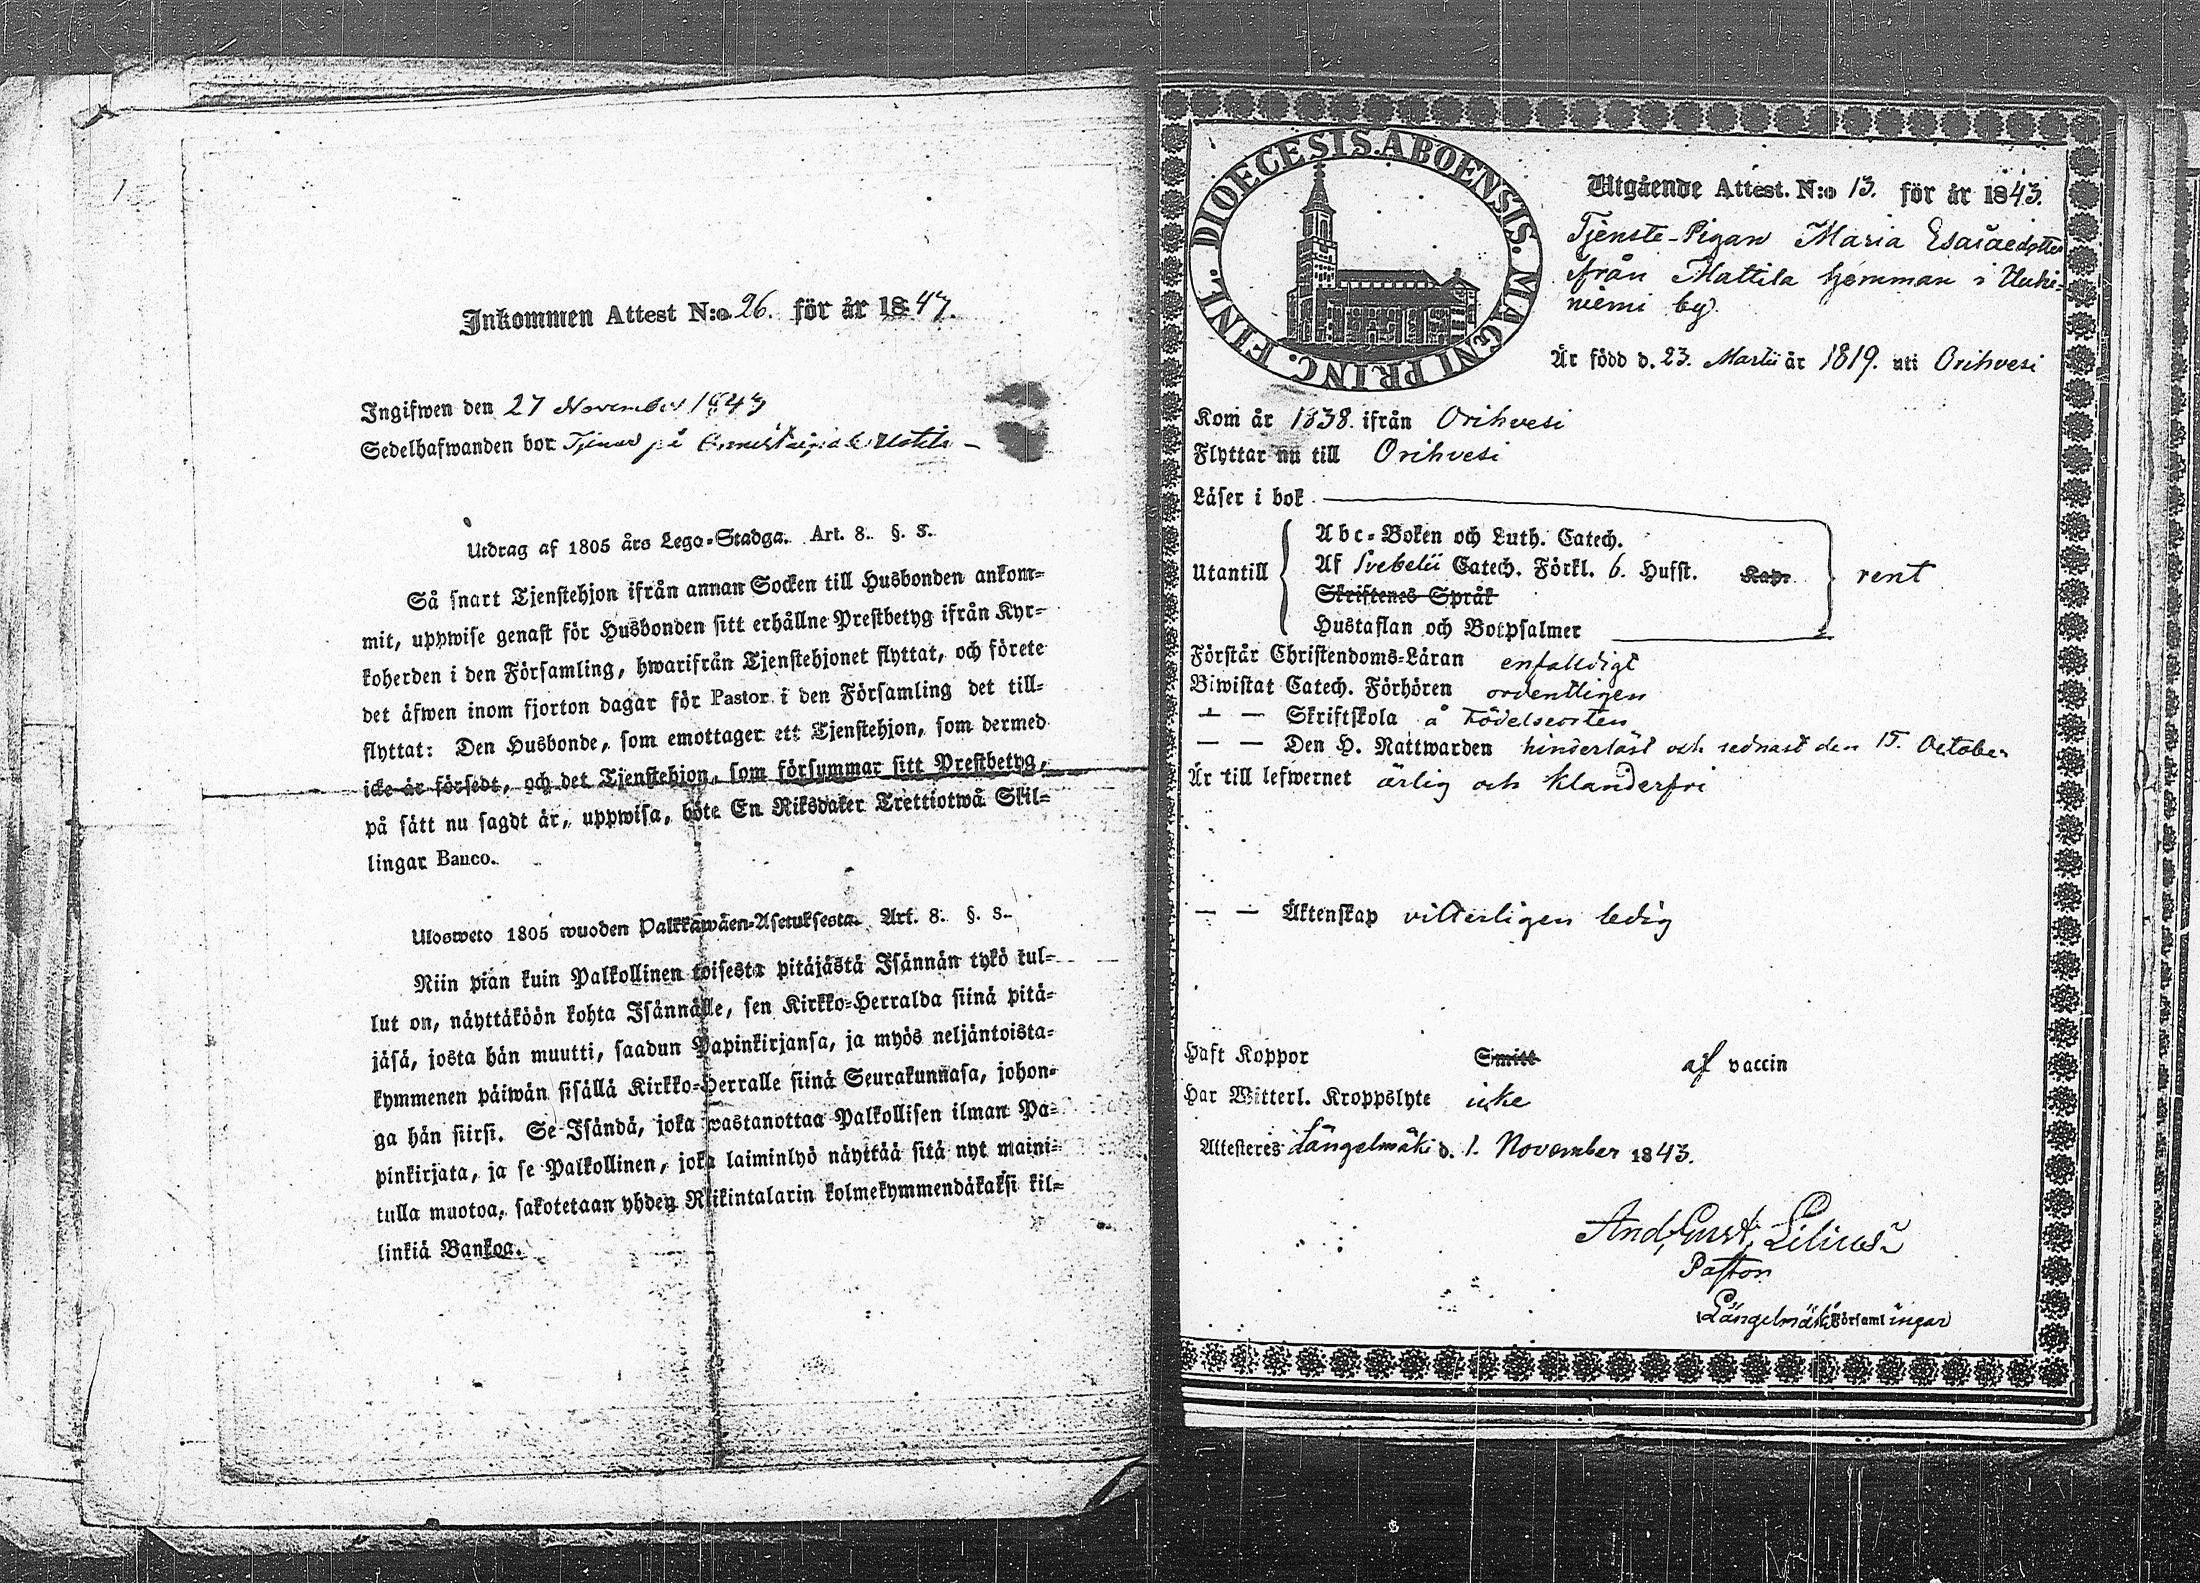 Inkommen Attest N:o 26. för år 1843.
Ingifwen den 27 November 1843
Sedelhafwanden bor Tjenar på
Utdrag af 1805 års Lego-Stadga. Art. 8. §. 3.
Så snart Tjenstehjon ifrån annan Socken till Husbonden ankom-
mit, uppwise genast för Husbonden sitt erhållne Prestbetyg ifrån Kyr-
koherden i den Församling, hwarifrån Tjenstehjonet flyttat, och förete
det äfwen inom fjorton dagar för Pastor i den Församling det till-
flyttat: Den Husbonde, som emottager ett Tjenstehjon, som dermed
icke är försedt, och det Tjenstehjon, som försummar sitt Prestbetyg,
på sätt nu sagdt är, uppwisa, böte En Riksdaler Trettiotwå Skil-
lingar Banco.
Ulosweto 1805 wuoden Palkkawäen-Asetuksesta. Art. 8. §. 3.
Niin pian kuin Palkollinen toisesta pitäjästä Isännän tykö tul-
lut on, näyttäköön kohta Isännälle, sen Kirkko-Herralda siinä pitä-
jäsä, josta hän muutti, saadun Papinkirjansa, ja myös neljäntoista-
kymmenen päiwän sisällä Kirkko-Herralle siinä Seurakunnasa, johon-
ga hän siirsi. Se Isändä, joka wastanottaa Palkollisen ilman Pa-
pinkirjata, ja se Palkollinen, joka laiminlyö näyttää sitä nyt maini-
tulla muotoa, sakotetaan yhden Riikintalarin kolmekymmendäkaksi kil-
linkiä Bankoa.
DIOECESIS. ABOENSIS. MAGNI PRINC. FINL.
Utgående Attest. N:o 13. för år 1843.
Tjenste-Pigan Maria Esaiaedotter
från Mattila hemman i
niemi by.
Är född d. 23. Martii år 1819. uti Orihvesi
Kom år 1838. ifrån Orihvesi
Flyttar nu till Orihvesi
Läser i bok
Abc-Boken och Luth. Catech.
Utantill Af Svebelii Catech. Förkl. 6. Hufst. Kap. rent
Skriftenes Språk
Hustaflan och Botpsalmer
Förstår Christendoms-Läran enfalldigt
Biwistat Catech. Förhören ordentligen
— — Skriftskola å Födelseorten
— — Den H. Nattwarden hinderlöst och sednast den 15. October
Är till lefwernet ärlig och klanderfri
— — Äktenskap vitterligen ledig
Haft Koppor Smitt af vaccin
Har Witterl. Kroppslyte icke
Attesteres Längelmäki d. 1. November 1843.
And. Gust. Lilius
Pastor
Längelmäki Församlingar